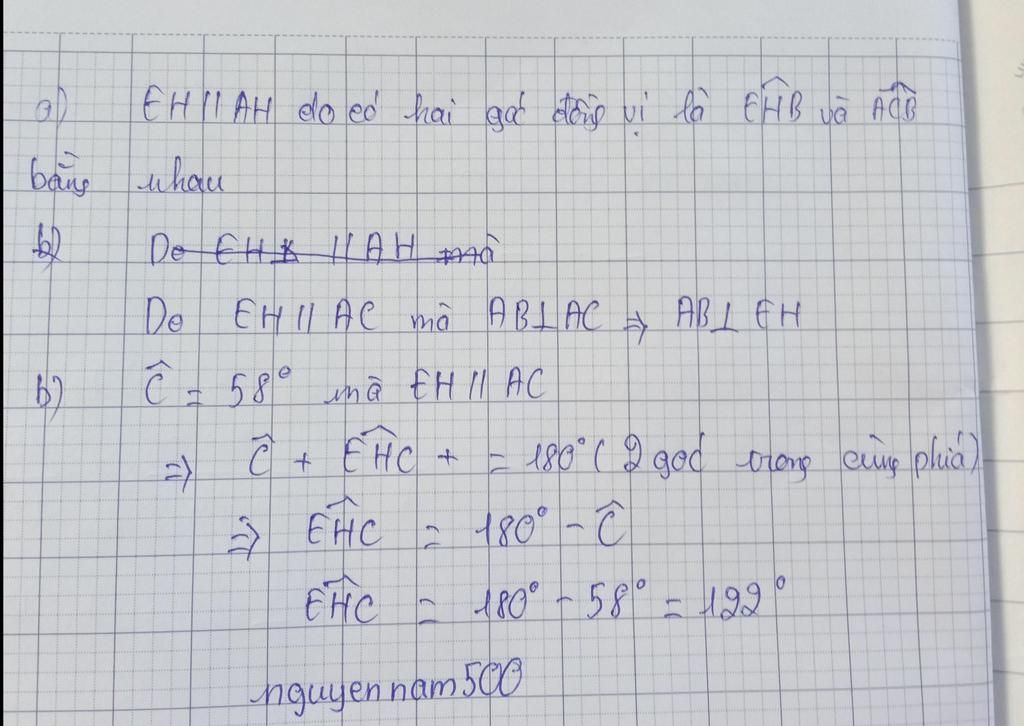 a) EH // AH do có hai góc đồng vị là \widehat{EHB} và \widehat{ACB}
bằng nhau
b) Do EH // AH mà
Do EH // AC mà AB ⊥ AC ⇒ AB ⊥ EH
b) \widehat{C} = 58° mà EH // AC
⇒ \widehat{C} + \widehat{EHC} + = 180° ( 2 góc trong cùng phía)
⇒ \widehat{EHC} = 180° - \widehat{C}
\widehat{EHC} = 180° - 58° = 122°
nguyennam500